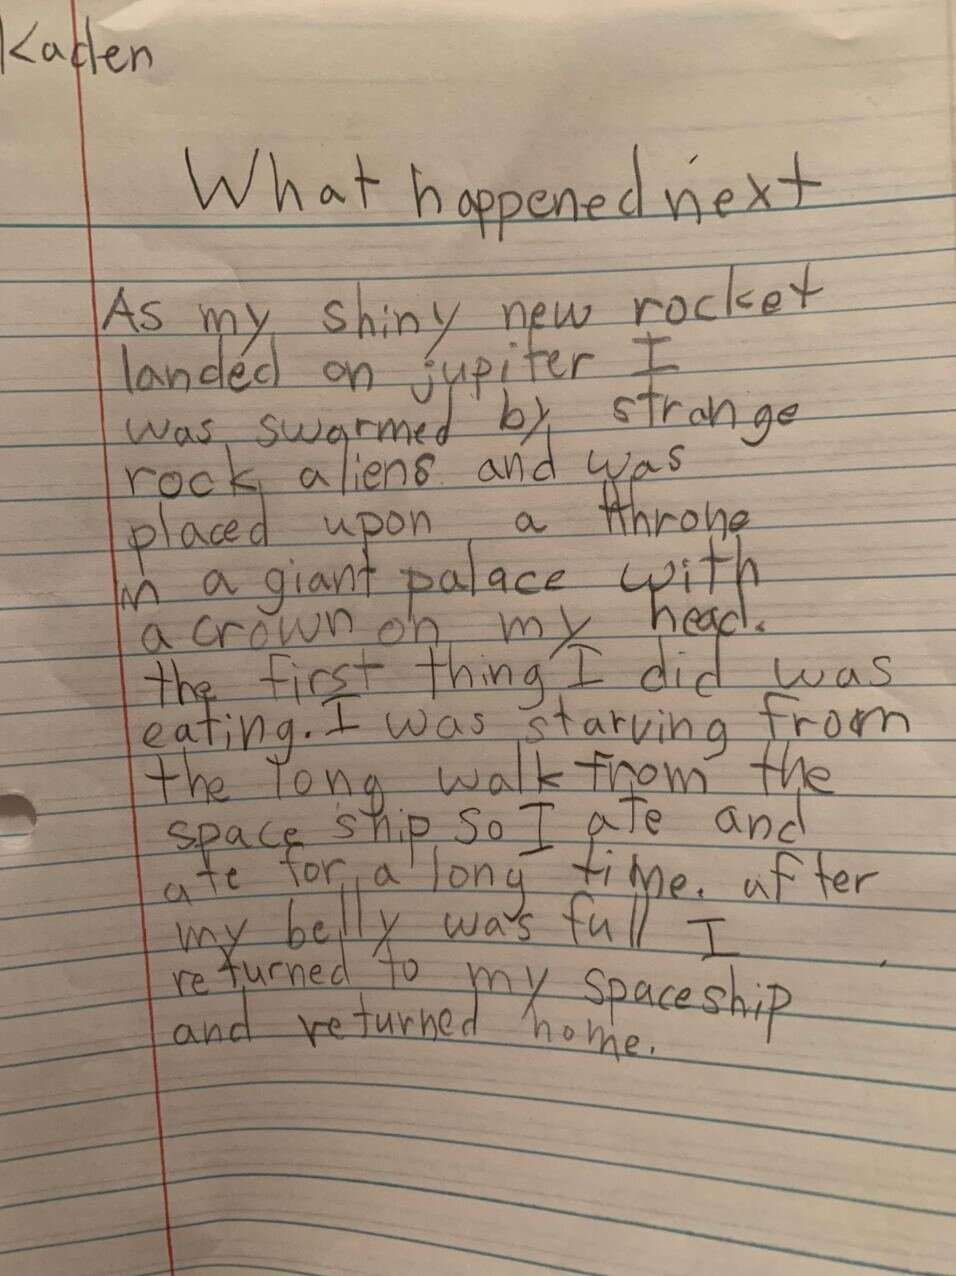 Kaden
What happened next
As my shiny new rocket
landed on jupiter I
was swarmed by strange
rock aliens and was
placed upon a throne
in a giant palace with
a crown on my head.
the first thing I did was
eating. I was starving from
the long walk from the
space ship so I ate and
ate for a long time. after
my belly was full I
returned to my spaceship
and returned home.